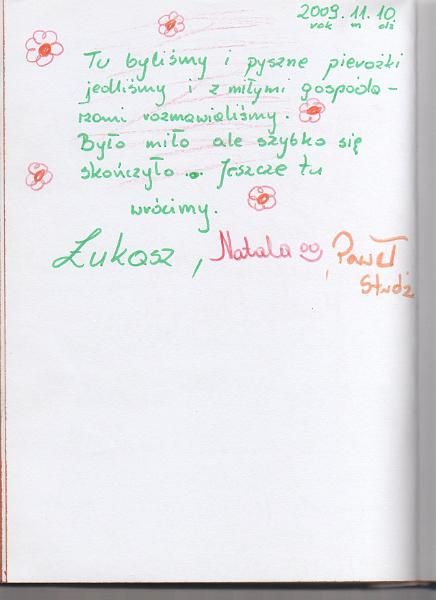 2009.11.10
rok m dz
Tu byliśmy i pyszne pierożki
jedliśmy i z miłymi gospoda-
rzami rozmawialiśmy.
Było miło ale szybko się
skończyło... Jeszcze tu
wrócimy.
Łukasz, Natala, Paweł